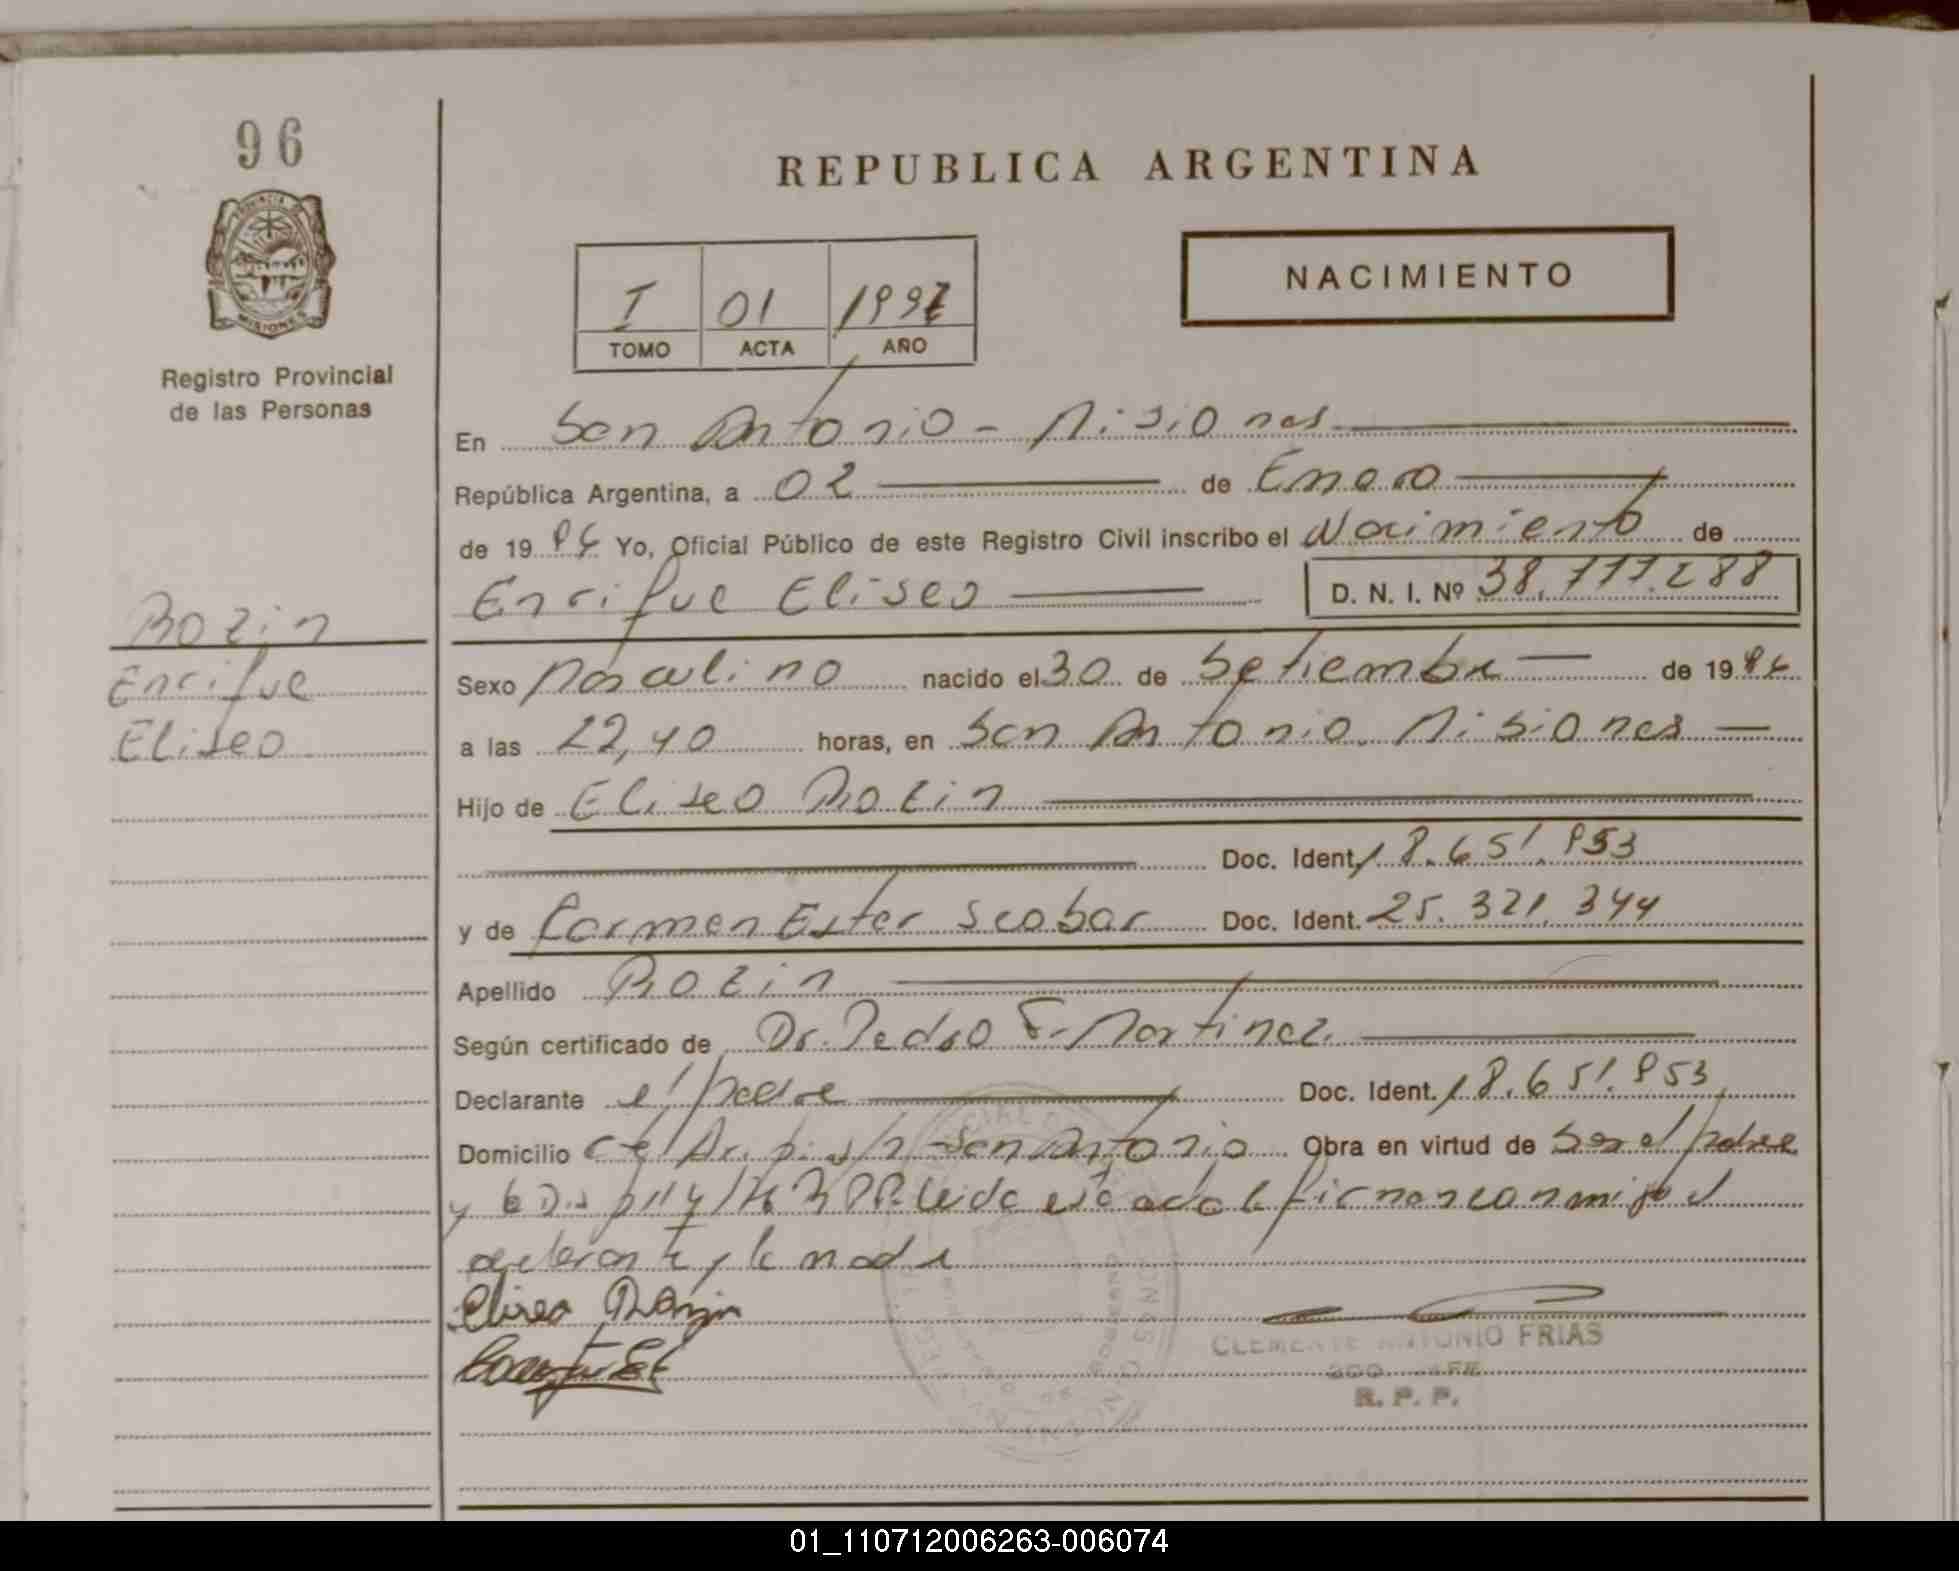 96
REPUBLICA ARGENTINA
PROVINCIA DE
MISIONES
Registro Provincial
de las Personas
NACIMIENTO
I 01
TOMO ACTA AÑO
En San Antonio - Misiones
República Argentina, a 02 de Enero
de 19 Yo, Oficial Público de este Registro Civil inscribo el Nacimiento de
Enrique Eliseo D. N. I. Nº 38.777.288
Rozin
Enrique
Eliseo
Sexo Masculino nacido el 30 de Setiembre de 19
a las 22,40 horas, en San Antonio Misiones
Hijo de Eliseo Rozin
Doc. Ident. 18.651.853
y de Carmen Ester Scobar Doc. Ident. 25.321.344
Apellido Rozin
Según certificado de Dr. Pedro F. Martinez
Declarante el padre Doc. Ident. 18.651.853
Domicilio s/n San Antonio Obra en virtud de Ser el padre
y Leida esta acta la firman con migo el
declarante y la madre
Eliseo Rozin
CLEMENTE ANTONIO FRIAS
R. P. P.
01_110712006263-006074